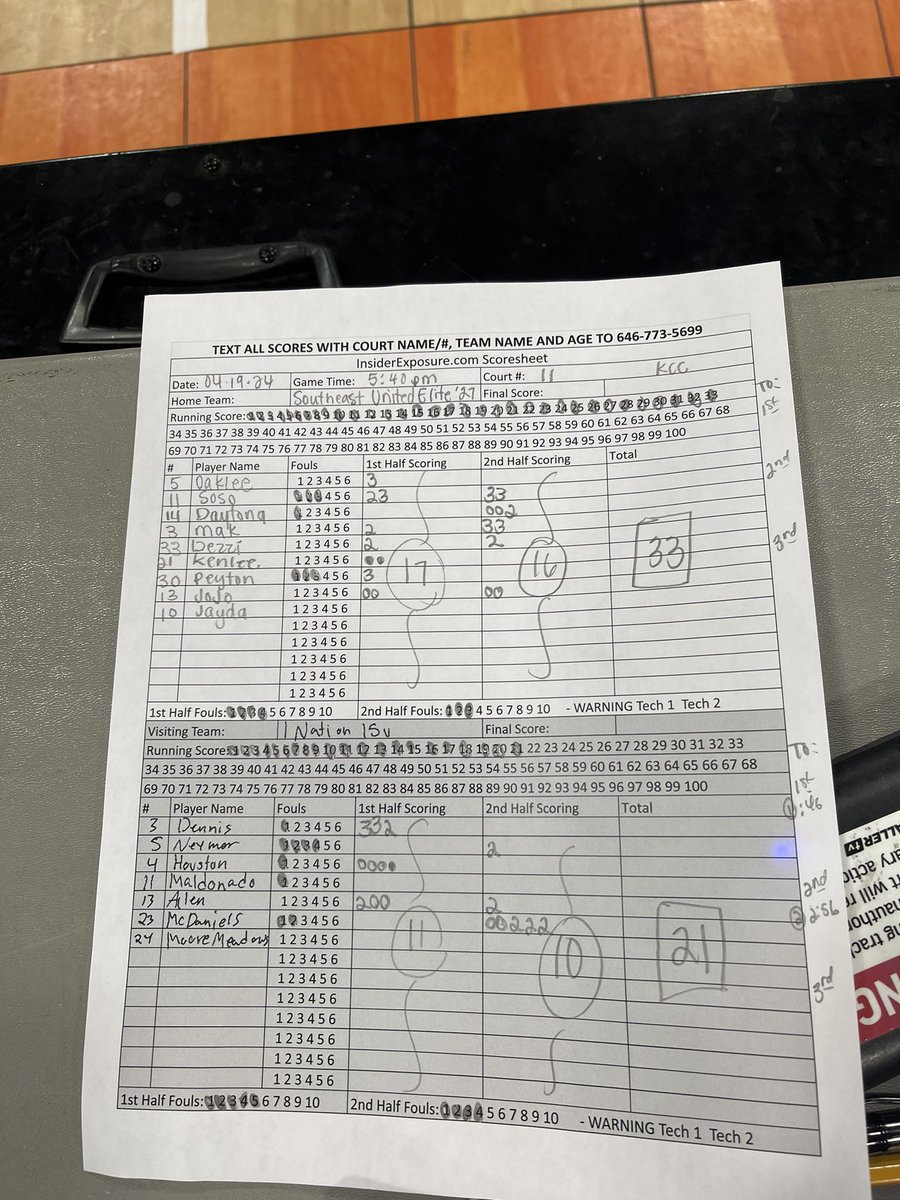 TEXT ALL SCORES WITH COURT NAME/#, TEAM NAME AND AGE TO 646-773-5699
InsiderExposure.com Scoresheet
Date: 04-19-24 Game Time: 5:40 pm Court #: 11 KCC
Home Team: Southeast United Elite '27 Final Score:
Running Score: 1 2 3 4 5 6 7 8 9 10 11 12 13 14 15 16 17 18 19 20 21 22 23 24 25 26 27 28 29 30 31 32 33
TO:
1st
34 35 36 37 38 39 40 41 42 43 44 45 46 47 48 49 50 51 52 53 54 55 56 57 58 59 60 61 62 63 64 65 66 67 68
69 70 71 72 73 74 75 76 77 78 79 80 81 82 83 84 85 86 87 88 89 90 91 92 93 94 95 96 97 98 99 100
# Player Name Fouls 1st Half Scoring 2nd Half Scoring Total
2nd
5 Oaklee 1 2 3 4 5 6 3
11 Soso 1 2 3 4 5 6 23 33
14 Daytona 1 2 3 4 5 6 002
3 Mak 1 2 3 4 5 6 2 33
3rd
33 Dezzi 1 2 3 4 5 6 2 2
21 Kenlee 1 2 3 4 5 6 17 16 33
30 Peyton 1 2 3 4 5 6 3
13 JoJo 1 2 3 4 5 6 00 00
10 Jayda 1 2 3 4 5 6
1 2 3 4 5 6
1 2 3 4 5 6
1 2 3 4 5 6
1 2 3 4 5 6
1 2 3 4 5 6
1st Half Fouls: 1 2 3 4 5 6 7 8 9 10 2nd Half Fouls: 1 2 3 4 5 6 7 8 9 10 - WARNING Tech 1 Tech 2
Visiting Team: 11 Nation 15u Final Score:
Running Score: 1 2 3 4 5 6 7 8 9 10 11 12 13 14 15 16 17 18 19 20 21 22 23 24 25 26 27 28 29 30 31 32 33
TO:
34 35 36 37 38 39 40 41 42 43 44 45 46 47 48 49 50 51 52 53 54 55 56 57 58 59 60 61 62 63 64 65 66 67 68
69 70 71 72 73 74 75 76 77 78 79 80 81 82 83 84 85 86 87 88 89 90 91 92 93 94 95 96 97 98 99 100
1st
# Player Name Fouls 1st Half Scoring 2nd Half Scoring Total
1 :46
3 Dennis 1 2 3 4 5 6 332
5 Neymor 1 2 3 4 5 6 2
4 Houston 1 2 3 4 5 6 0000
11 Maldonado 1 2 3 4 5 6
2nd
13 Allen 1 2 3 4 5 6 200 2
2 2:56
23 McDaniels 1 2 3 4 5 6 00222
24 Moore Meadows 1 2 3 4 5 6 11 10 21
3rd
1 2 3 4 5 6
1 2 3 4 5 6
1 2 3 4 5 6
1 2 3 4 5 6
1 2 3 4 5 6
1 2 3 4 5 6
1 2 3 4 5 6
1st Half Fouls: 1 2 3 4 5 6 7 8 9 10 2nd Half Fouls: 1 2 3 4 5 6 7 8 9 10 - WARNING Tech 1 Tech 2